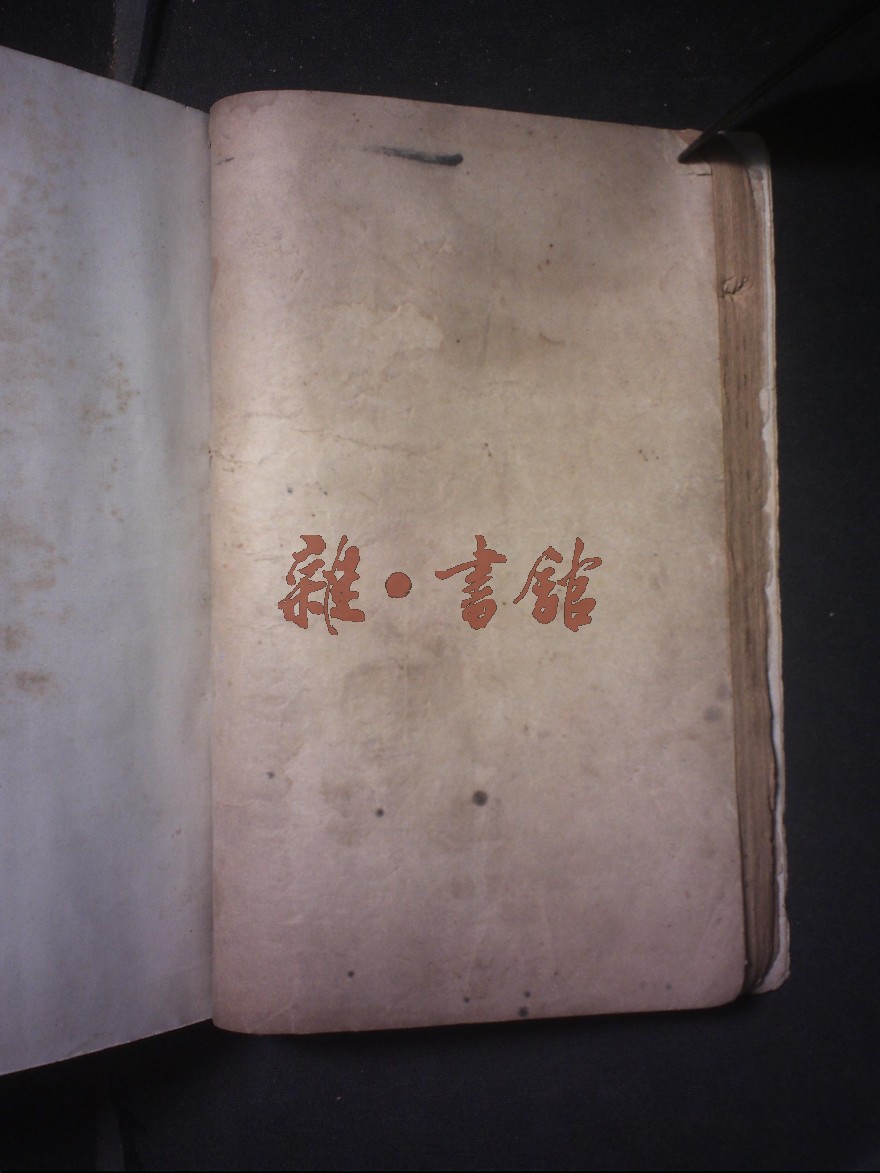 雜・書館